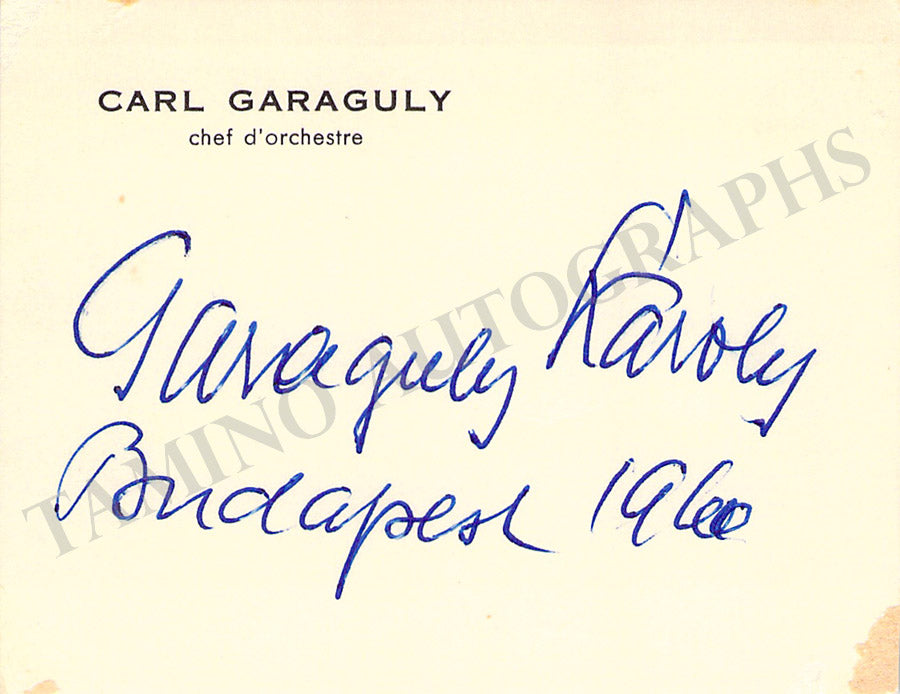 CARL GARAGULY
chef d'orchestre
Garaguly Károly
Budapest 1960
TAMINO AUTOGRAPHS